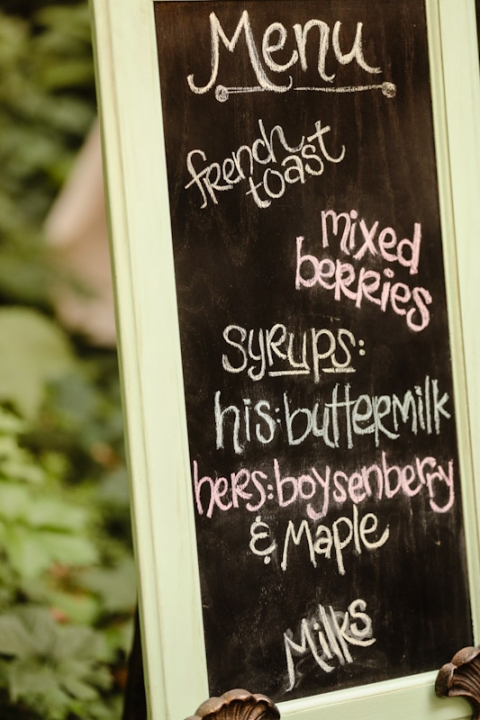 Menu
french
toast
mixed
berries
syrups:
his:buttermilk
hers:boysenberry
& Maple
Milks